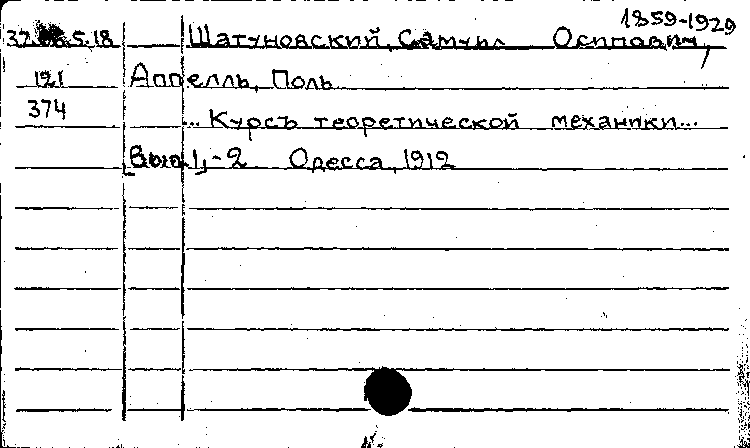 1859-1929
5.18 Шатуновский, Самуил Осипович,
121 Аппелль, Поль
374 ... Курсъ теоретической механики...
[Вып.1]-2 Одесса, 1912